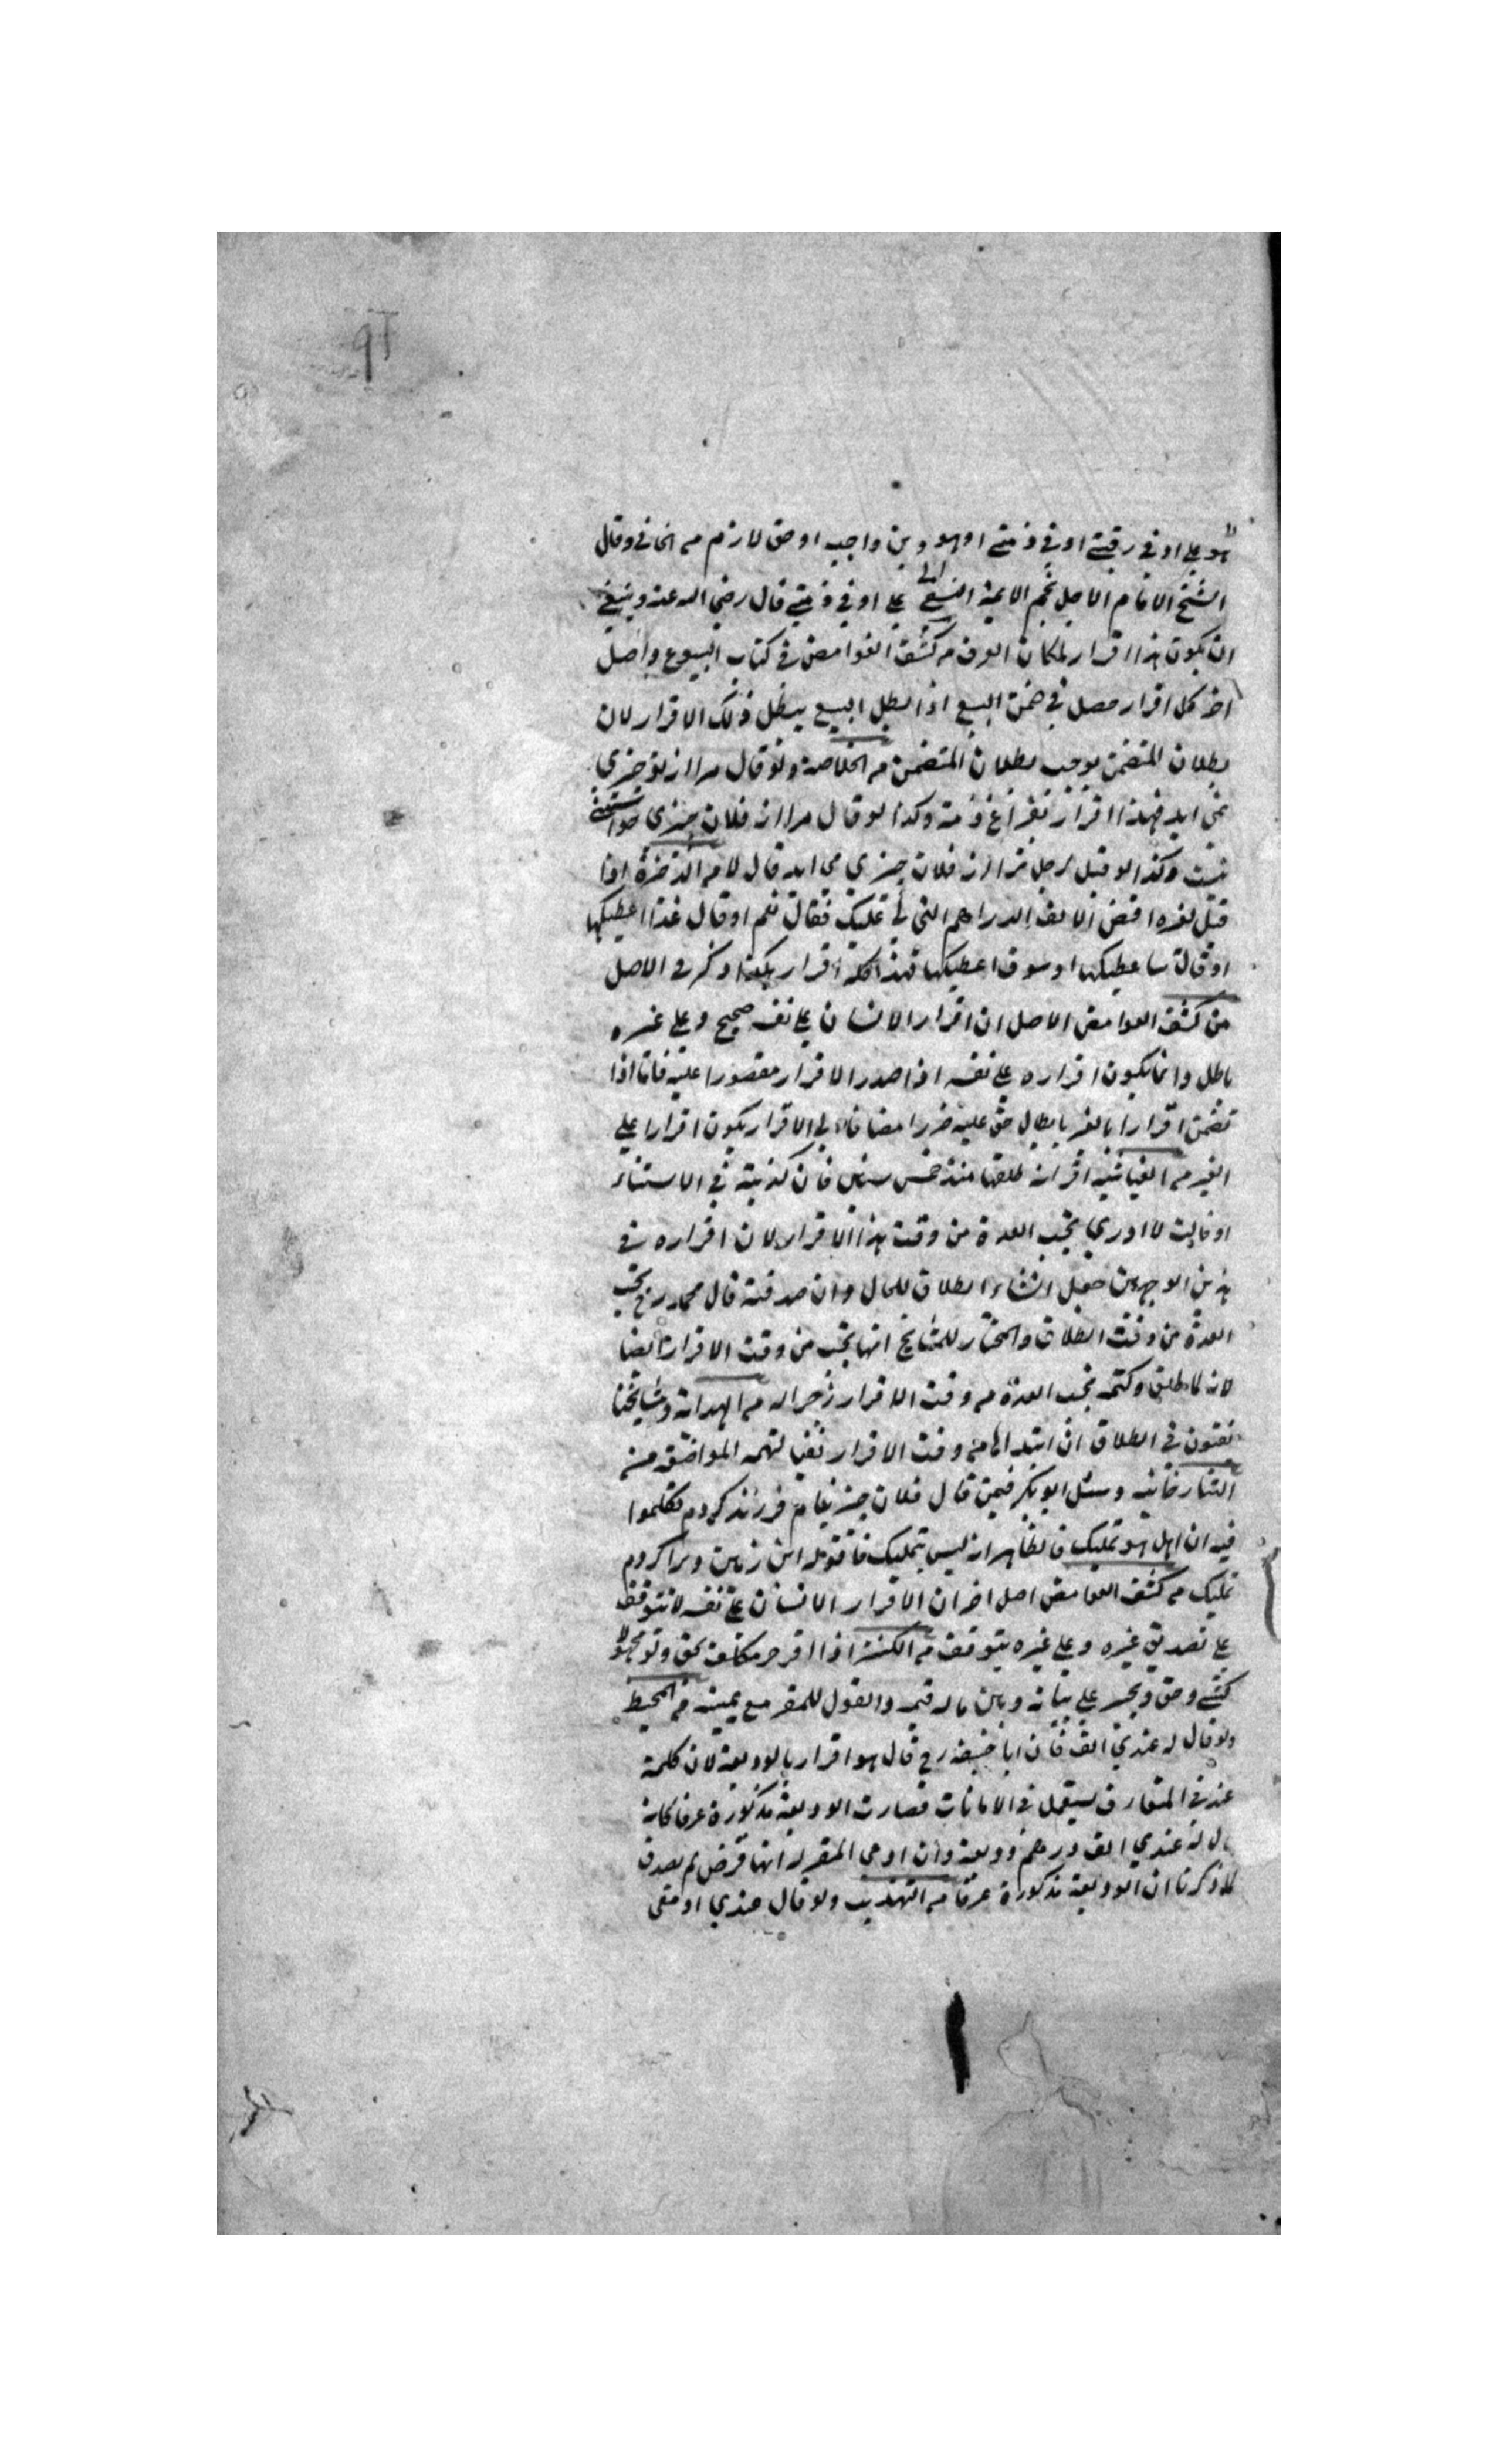 هو علي او في رقبتي او في ذمتي او هو دين واجب او حق لازم من الخاني وقال
الشيخ الامام الاجل نجم الايمة النسفي علي او في ذمتي قال رضي الله عنه وينبغي
ان يكون هذا اقرار لمكان العرف من كشف الغوامض في كتاب البيوع واصل
اخر كل اقرار حصل في ضمن البيع اذا بطل البيع يبطل ذلك الاقرار لان
بطلان المتضمن يوجب بطلان المتضمن من الخلاصة ولو قال مرا از تو چيزي
نمي ايد فهذا اقرار بفراغ ذمته وكذا لو قال مرا از فلان چيزي خواستني
نيست وكذا لو قيل لرجل ترا از فلان چيزي مي ايد قال لا من الذخيرة اذا
قيل لغيره اقض الالف الدراهم التي لي عليك فقال نعم او قال غدا اعطيكها
او قال ساعطيكها او سوف اعطيكها فهذا كله اقرار هكذا ذكر في الاصل
من كشف الغوامض الاصل ان اقرار الانسان علي نفسه صحيح وعلي غيره
باطل وانما يكون اقراره علي نفسه اذا صدر الاقرار مقصورا عليه فاما اذا
تضمن اقرارا بالغير بابطال حق عليه ضررا مضافا الي الاقرار يكون اقرارا علي
الغير من الغياثيه اقر انه طلقها منذ خمس سنين فان كذبته في الاستناد
او قالت لا ادري تجب العدة من وقت هذا الاقرار لان اقراره في
هذين الوجهين جعل انشاء الطلاق للحال وان صدقته قال محمد رح تجب
العدة من وقت الطلاق والمختار للمشايخ انها تجب من وقت الاقرار ايضا
لانه لما طلق وكتمه تجب العدة من وقت الاقرار زجرا له من الهداية ومشايخنا
يفتون في الطلاق ان ابتداها من وقت الاقرار نفيا لتهمة المواضعة من
التتارخانيه وسئل ابو بكر فيمن قال فلان چيز بنام فرزند كردم تكلموا
فيه ان اهل هو تمليك فالظاهر انه ليس بتمليك فاقوله اين زمين ويرا كردم
تمليك من كشف الغوامض اصل اخر ان الاقرار الانسان علي نفسه لا يتوقف
علي تصديق غيره وعلي غيره يتوقف من الكنز اذا اقر حر مكلف بحق ولو مجهولا
كشيء وحق ويجبر علي بيانه وبين ماله قيمة والقول للمقر مع يمينه من المحيط
ولو قال له عندي الف فان ابا حنيفه رح قال هو اقرار بالوديعة لان كلمة
عند في المتعارف يستعمل في الامانات فصارت الوديعة مذكورة عرفا كانه
قال له عندي الف درهم وديعة وان ادعي المقر له انها قرض لم يصدق
لما ذكرنا ان الوديعة مذكورة عرفا من التهذيب ولو قال عندي او معي